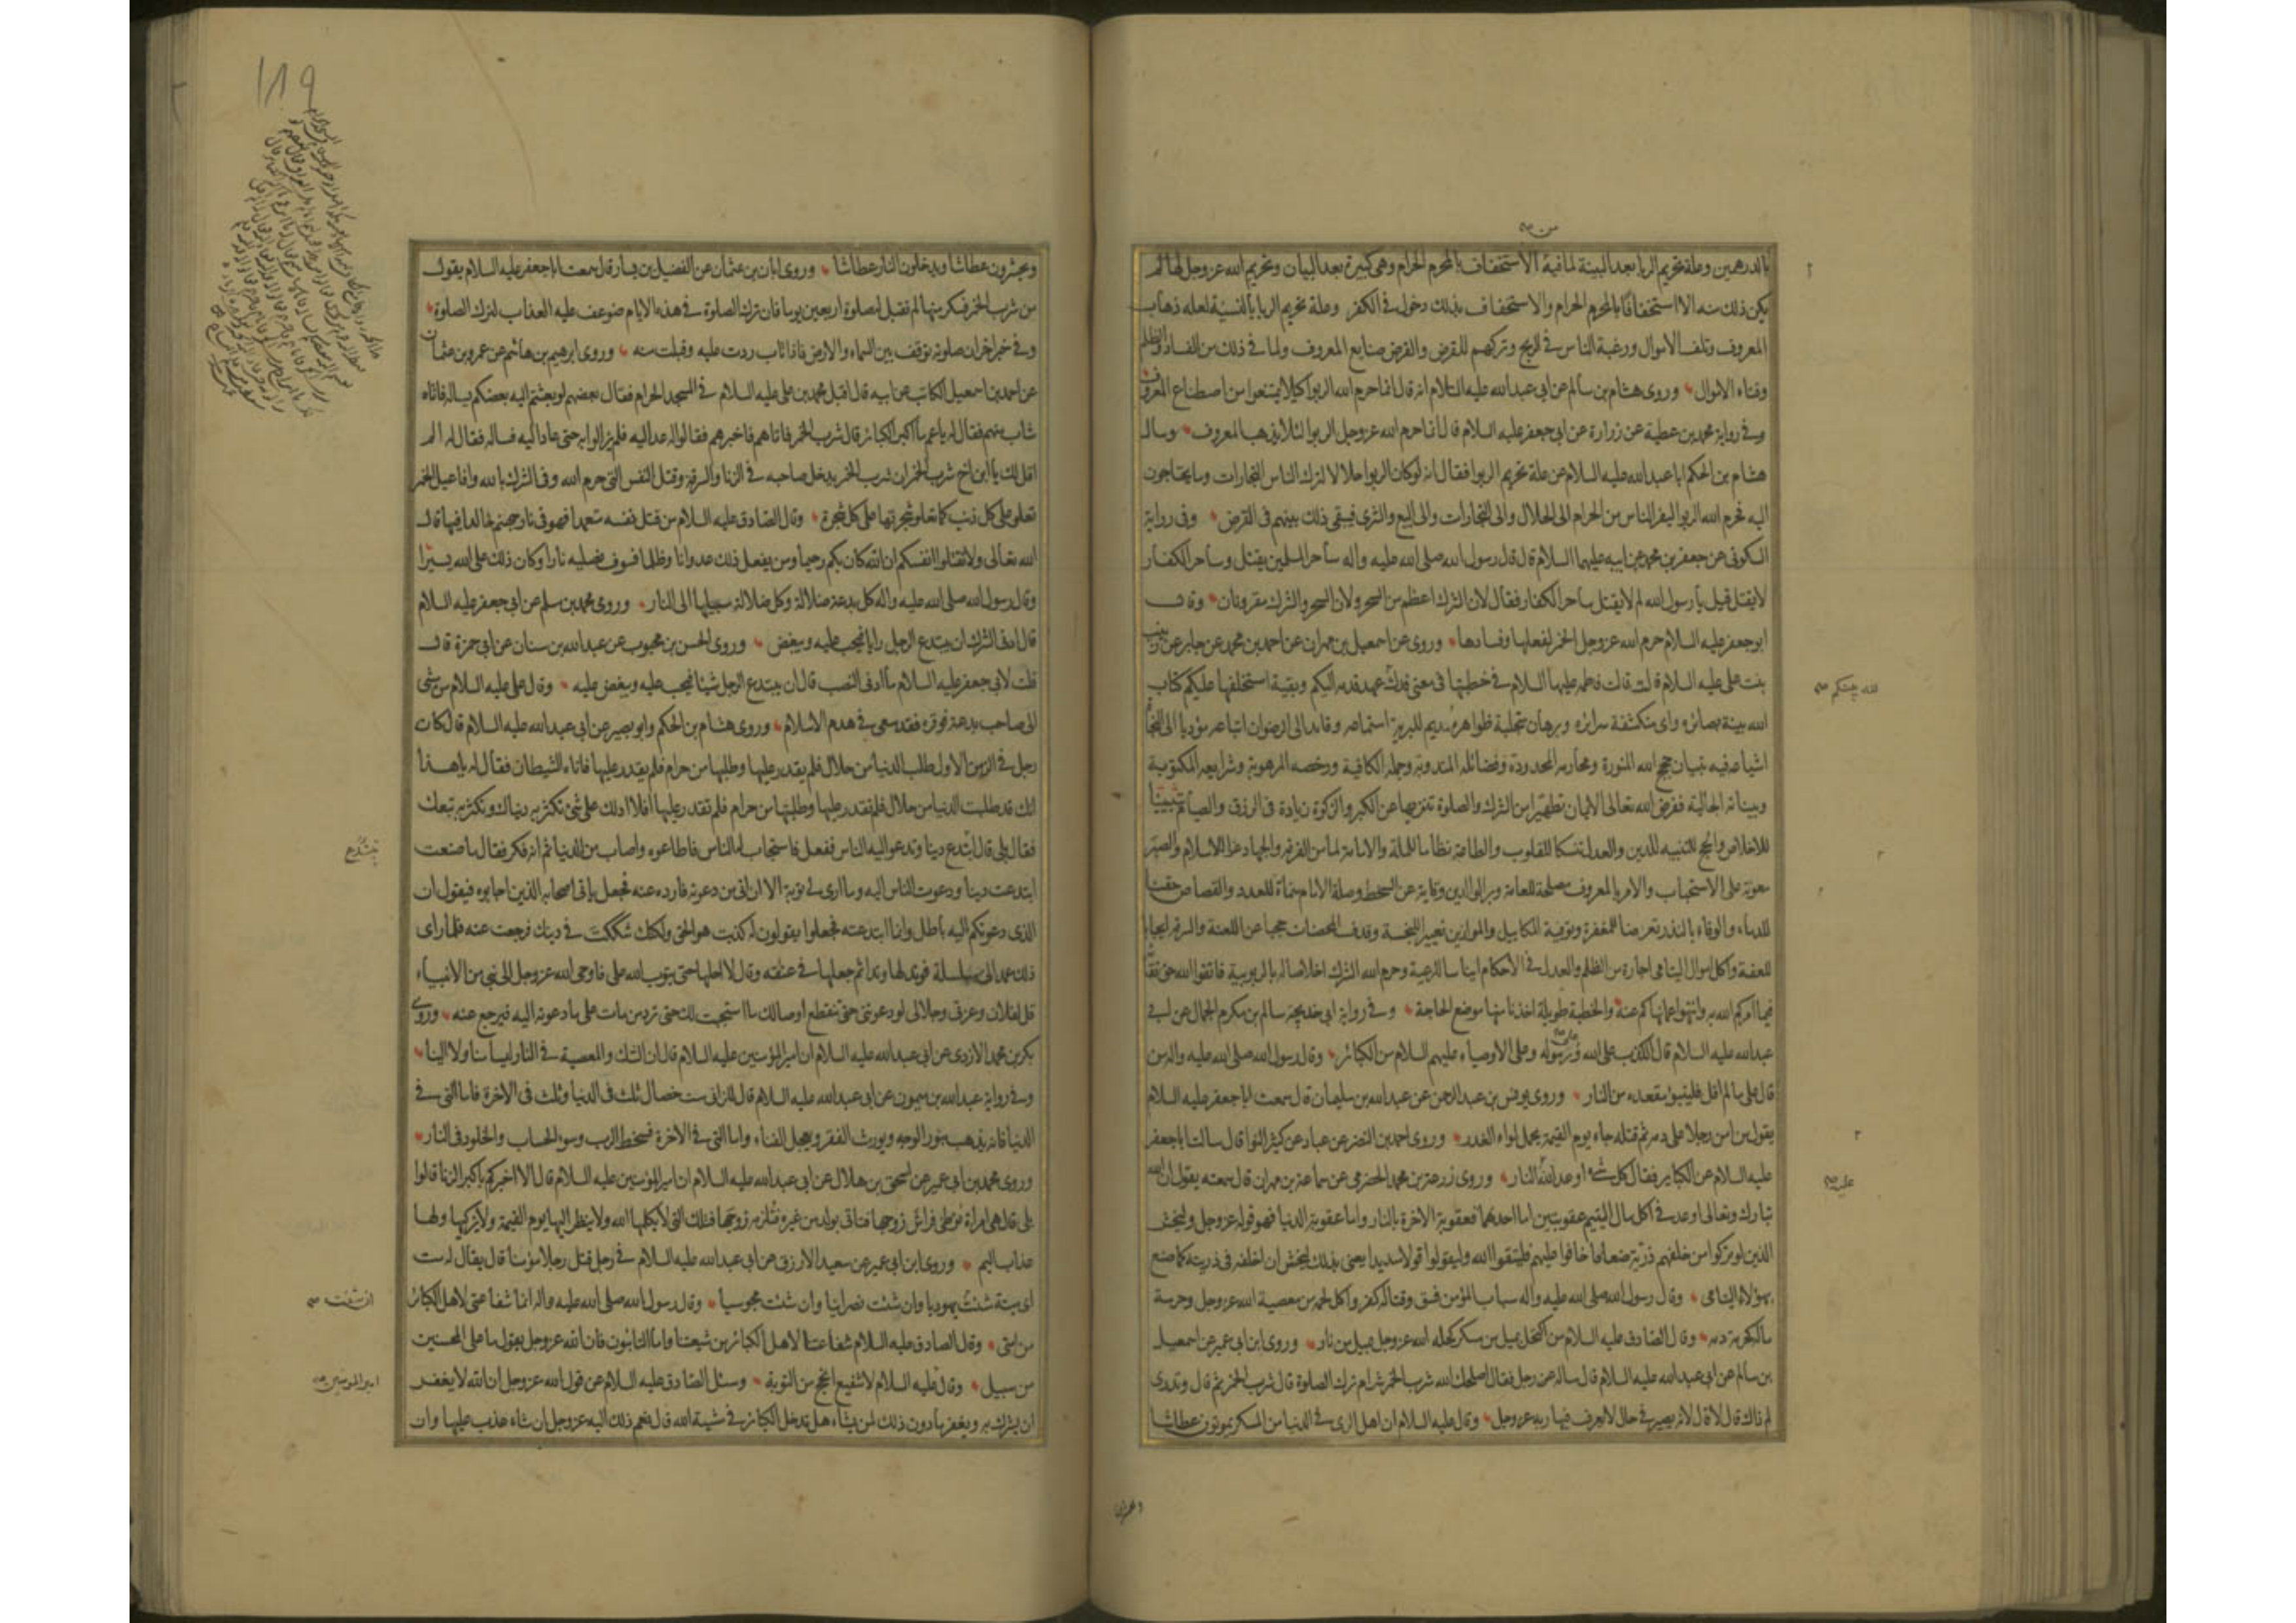 من
بالدرهمين وعلة تحريم الربا بعد البينة لما فيه الاستخفاف بالمحرم الحرام وهي كبيرة بعد البيان وتحريم الله عز وجل لها لم
يكن ذلك منه الا استخفافا بالمحرم الحرام والاستخفاف بذلك دخول في الكفر وعلة تحريم الربا بالنسية لعله ذهاب
المعروف وتلف الاموال ورغبة الناس في الربح وتركهم للقرض والقرض صنايع المعروف ولما في ذلك من الفساد والظلم
وفناء الاموال وروى هشام بن سالم عن ابي عبد الله عليه السلام انه قال انما حرم الله الربوا كيلا يمتنعوا من اصطناع المعروف
وفي رواية محمد بن عطية عن زرارة عن ابي جعفر عليه السلام قال انما حرم الله عز وجل الربوا لئلا يذهب المعروف وسال
هشام بن الحكم ابا عبد الله عليه السلام عن علة تحريم الربوا فقال انه لو كان الربوا حلالا لترك الناس التجارات وما يحتاجون
اليه فحرم الله الربوا ليفر الناس من الحرام الى الحلال والى التجارات والى البيع والشرى فيبقى ذلك بينهم في القرض وفي رواية
السكوني عن جعفر بن محمد عن ابيه عليهما السلام قال قال رسول الله صلى الله عليه واله ساحر المسلمين يقتل وساحر الكفار
لا يقتل قيل يا رسول الله لم لا يقتل ساحر الكفار فقال لان الشرك اعظم من السحر ولان السحر والشرك مقرونان وقال
ابو جعفر عليه السلام حرم الله عز وجل الخمر لفعلها وفسادها وروى عن اسمعيل بن مهران عن احمد بن محمد عن جابر عن زينب
بنت علي عليه السلام قالت قالت فاطمه عليها السلام في خطبتها في معنى فدك عهد قدمه اليكم وبقية استخلفها عليكم كتاب
الله بينة بصائره واي منكشفة سرائره وبرهان متجلية ظواهره مديم للبرية استماعه وقايد الى الرضوان اتباعه مؤديا الى النجاة
اشياعه فيه تبيان حجج الله المنورة ومحارمه المحدودة وفضائله المندوبة وجمله الكافية ورخصه المرهوبة وشرايعه المكتوبة
وبيناته الجالية ففرض الله تعالى الايمان تطهيرا من الشرك والصلوة تنزيها عن الكبر والزكوة زيادة في الرزق والصيام تثبيتا
للاخلاص والحج للتنبيه للدين والعدل تنسكا للقلوب والطاعة نظاما للملة والامامة لما من الفرقة والجهاد عزا للاسلام والصبر
معونة على الاستجباب والامر بالمعروف مصلحة للعامة وبر الوالدين وقاية عن السخط وصلة الارحام منماة للعدد والقصاص حقنا
للدماء والوفاء بالنذر تعرضا للمغفرة وتوفية المكاييل والموازين تغييرا للبخسة وقذف المحصنات حجبا عن اللعنة والسرقة ايجابا
للعفة واكل اموال اليتامى اجارة من الظلم والعدل في الاحكام ايناسا للرعية وحرم الله الشرك اخلاصا له بالربوبية فاتقوا الله حق تقاته
فيما امركم الله به وانتهوا عما نهاكم عنه والخطبة طويلة اخذنا منها موضع الحاجة وفي رواية ابي خديجة سالم بن مكرم الجمال عن ابي
عبد الله عليه السلام قال الكذب على الله وعلى رسوله وعلى الاوصياء عليهم السلام من الكبائر وقال رسول الله صلى الله عليه واله من
قال علي ما لم اقل فليتبوء مقعده من النار وروى يونس بن عبد الرحمن عن عبد الله بن سليمان قال سمعت ابا جعفر عليه السلام
يقول من امن رجلا على دمه ثم قتله جاء يوم القيمة يحمل لواء الغدر وروى احمد بن النضر عن عباد عن كثير النوا قال سالت ابا جعفر
عليه السلام عن الكبائر فقال كل شيء اوعد الله النار وروى زرعة بن محمد الحضرمي عن سماعة بن مهران قال سمعته يقول ان الله
تبارك وتعالى اوعد في اكل مال اليتيم عقوبتين اما احدهما فعقوبة الاخرة بالنار واما عقوبة الدنيا فهو قوله عز وجل وليخش
الذين لو تركوا من خلفهم ذرية ضعافا خافوا عليهم فليتقوا الله وليقولوا قولا سديدا يعني بذلك ليخش ان اخلفه في ذريته كما صنع
بهؤلاء اليتامى وقال رسول الله صلى الله عليه واله سباب المؤمن فسق وقتاله كفر واكل لحمه من معصية الله عز وجل وحرمة
ماله كحرمة دمه وقال الصادق عليه السلام من اكتحل بميل من مسكر كحله الله عز وجل بميل من نار وروى ابن ابي عمير عن اسمعيل
بن سالم عن ابي عبد الله عليه السلام قال ساله عن رجل فقال اصلحك الله شرب الخمر شر ام ترك الصلوة قال شرب الخمر ثم قال وتدرى
لم ذاك قال لا قال لانه يصير في حال لا يعرف فيها ربه عز وجل وقال عليه السلام ان اهل الري في الدنيا من المسكر يموتون عطاشا
لله بينكم
عليه
ويحشرون
١٨٩
ويحشرون عطاشا ويدخلون النار عطاشا وروى ابان بن عثمان عن الفضيل بن يسار قال سمعت ابا جعفر عليه السلام يقول
من شرب الخمر فسكر منها لم تقبل له صلوة اربعين يوما فان ترك الصلوة في هذه الايام ضوعف عليه العذاب لترك الصلوة
وفي خبر اخر ان صلوته توقف بين السماء والارض فاذا تاب ردت عليه وقبلت منه وروى ابرهيم بن هاشم عن عمرو بن عثمان
عن احمد بن اسمعيل الكاتب عن ابيه قال اقبل محمد بن علي عليه السلام في المسجد الحرام فقال بعضهم لو بعثتم اليه بعضكم يساله فاتاه
شاب منهم فقال له يا عم ما اكبر الكبائر قال شرب الخمر فاتاهم فاخبرهم فقالوا له عد اليه فلم يزالوا به حتى عاد اليه فساله فقال له الم
اقل لك يا ابن اخ شرب الخمر ان شرب الخمر يدخل صاحبه في الزنا والسرقة وقتل النفس التي حرم الله وفي الشرك بالله وافاعيل الخمر
تعلو على كل ذنب كما تعلو شجرتها على كل شجرة وقال الصادق عليه السلام من قتل نفسه متعمدا فهو في نار جهنم خالدا فيها قال
الله تعالى ولا تقتلوا انفسكم ان الله كان بكم رحيما ومن يفعل ذلك عدوانا وظلما فسوف نصليه نارا وكان ذلك على الله يسيرا
وقال رسول الله صلى الله عليه واله كل بدعة ضلالة وكل ضلالة سبيلها الى النار وروى محمد بن مسلم عن ابي جعفر عليه السلام
قال ادنى الشرك ان يبتدع الرجل رايا فيحب عليه ويبغض وروى الحسن بن محبوب عن عبد الله بن سنان عن ابي حمزة قال
قلت لابي جعفر عليه السلام ما ادنى النصب قال ان يبتدع الرجل شيئا فيحب عليه ويبغض عليه وقال علي عليه السلام من مشى
الى صاحب بدعة فوقره فقد سعى في هدم الاسلام وروى هشام بن الحكم وابو بصير عن ابي عبد الله عليه السلام قال كان
رجل في الزمن الاول طلب الدنيا من حلال فلم يقدر عليها وطلبها من حرام فلم يقدر عليها فاتاه الشيطان فقال له يا هذا
انك قد طلبت الدنيا من حلال فلم تقدر عليها وطلبتها من حرام فلم تقدر عليها افلا ادلك على شئ تكثر به دنياك وتكثر به تبعك
فقال بلى قال ابتدع دينا وتدعو اليه الناس ففعل فاستجاب له الناس فاطاعوه واصاب من الدنيا ثم انه فكر فقال ما صنعت
ابتدعت دينا ودعوت الناس اليه وما ارى لي توبة الا ان اتي من دعوته فارده عنه فجعل ياتي اصحابه الذين اجابوه فيقول ان
الذي دعوتكم اليه باطل وانما ابتدعته فجعلوا يقولون له كذبت هو الحق ولكنك شككت في دينك فرجعت عنه فلما راى
ذلك عمد الى سلسلة فوتد لها وتدا ثم جعلها في عنقه وقال لا احلها حتى يتوب الله علي فاوحى الله عز وجل الى نبي من الانبياء
قل لفلان وعزتي وجلالي لو دعوتني حتى تنقطع اوصالك ما استجبت لك حتى ترد من مات على ما دعوته اليه فيرجع عنه وروى
بكر بن محمد الازدي عن ابي عبد الله عليه السلام ان امير المؤمنين عليه السلام قال ان الشك والمعصية في النار ليسا منا ولا الينا
وفي رواية عبد الله بن ميمون عن ابي عبد الله عليه السلام قال للزاني ست خصال ثلث في الدنيا وثلث في الاخرة فاما التي في
الدنيا فانه يذهب بنور الوجه ويورث الفقر ويعجل الفناء واما التي في الاخرة فسخط الرب وسوء الحساب والخلود في النار
وروى محمد بن ابي عمير عن اسحق بن هلال عن ابي عبد الله عليه السلام ان امير المؤمنين عليه السلام قال الا اخبركم باكبر الزنا قالوا
بلى قال هي امراة توطى فراش زوجها فتاتي بولد من غيره فتلزمه زوجها فتلك التي لا يكلمها الله ولا ينظر اليها يوم القيمة ولا يزكيها ولها
عذاب اليم وروى ابن ابي عمير عن سعيد الازرق عن ابي عبد الله عليه السلام في رجل قتل رجلا مؤمنا قال يقال له مت
اي ميتة شئت يهوديا وان شئت نصرانيا وان شئت مجوسيا وقال رسول الله صلى الله عليه واله انما شفاعتي لاهل الكبائر
من امتي وقال الصادق عليه السلام شفاعتنا لاهل الكبائر من شيعتنا واما التائبون فان الله عز وجل يقول ما على المحسنين
من سبيل وقال عليه السلام لا شفيع انجح من التوبة وسئل الصادق عليه السلام عن قول الله عز وجل ان الله لا يغفر
ان يشرك به ويغفر ما دون ذلك لمن يشاء هل تدخل الكبائر في مشية الله قال نعم ذلك اليه عز وجل ان شاء عذب عليها وان
ان شئت
امير المؤمنين